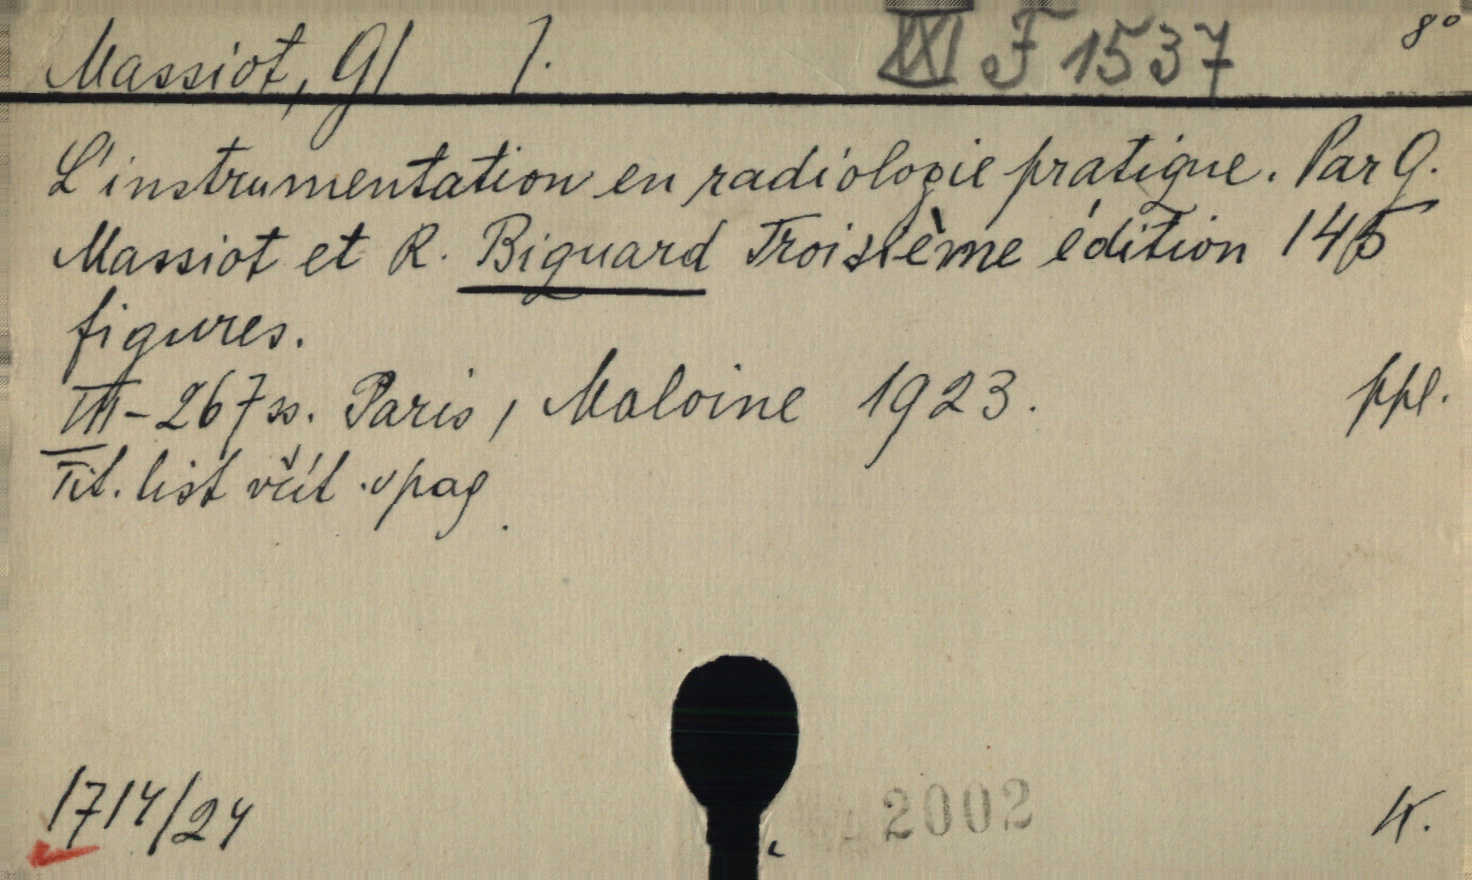 Massiot, G/ 7. XXI F 1537 8°
L'instrumentation en radiologie pratique. Par G.
Massiot et R. Biquard Troisième édition 145
figures.
III-267 ss. Paris, Maloine 1923. ppl.
Tit. list včít. v pag.
1714/24 2002 K.